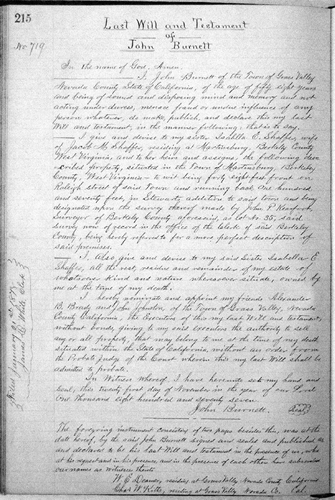 215
Last Will and Testament
of
John Burnett
No. 719
In the name of God, Amen.
I, John Burnett of the Town of Grass Valley,
Nevada County State of California, of the age of fifty eight years
and being of sound and disposing mind and memory and not
acting under duress, menace fraud or undue influence of any
person whatever, do make, publish, and declare this my last
Will and testament, in the manner following, that is to say.
I give and devise to my sister, Isabella E. Shaffer, wife
of Jacob M. Shaffer, residing at Martinsburg, Berkeley County
West Virginia, and to her heirs and assigns, the following
property, situated in the Town of Martinsburg, Berkeley
County, West Virginia to wit being forty eight feet front on
Raleigh street of said Town and running back one hundred
and seventy feet, in addition to said town and being
designated upon the survey thereof made by John P.
Surveyor of Berkeley County aforesaid, as Lot No. 35, said
survey now of record in the office of the Clerk of said Berkeley
County being hereby referred to for a more perfect description of
said premises.
I also give and devise to my said sister Isabella E.
Shaffer, all the rest, residue and remainder of my estate of
whatever kind and nature wheresoever situate, owned by
me at the time of my death.
I hereby nominate and appoint my friends Alexander
B. Brady and John Johnston of the Town of Grass Valley, Nevada
County California, the Executors of this my last Will and testament,
without bonds, giving to my said executors the authority to sell
any or all property, that may belong to me at the time of my death
situated within the State of California, without an order from
the Probate Judge of the Court wherein this my last Will shall be
admitted to probate.
In Witness Whereof, I have hereunto set my hand and
seal, this twenty first day of November in the year of our Lord
One thousand eight hundred and seventy seven.
John Burnett Seal
The foregoing instrument consisting of two pages besides this, was at the
date hereof, by the said John Burnett signed and sealed and published as
and declared to be his last Will and testament in the presence of us, who
at his request and in his presence, and in the presence of each other, have subscribed
our names as witness thereto.
residing at Grass Valley Nevada County California
Chas. W. Kitts, residing at Grass Valley Nevada Co. Cal.
Filed January